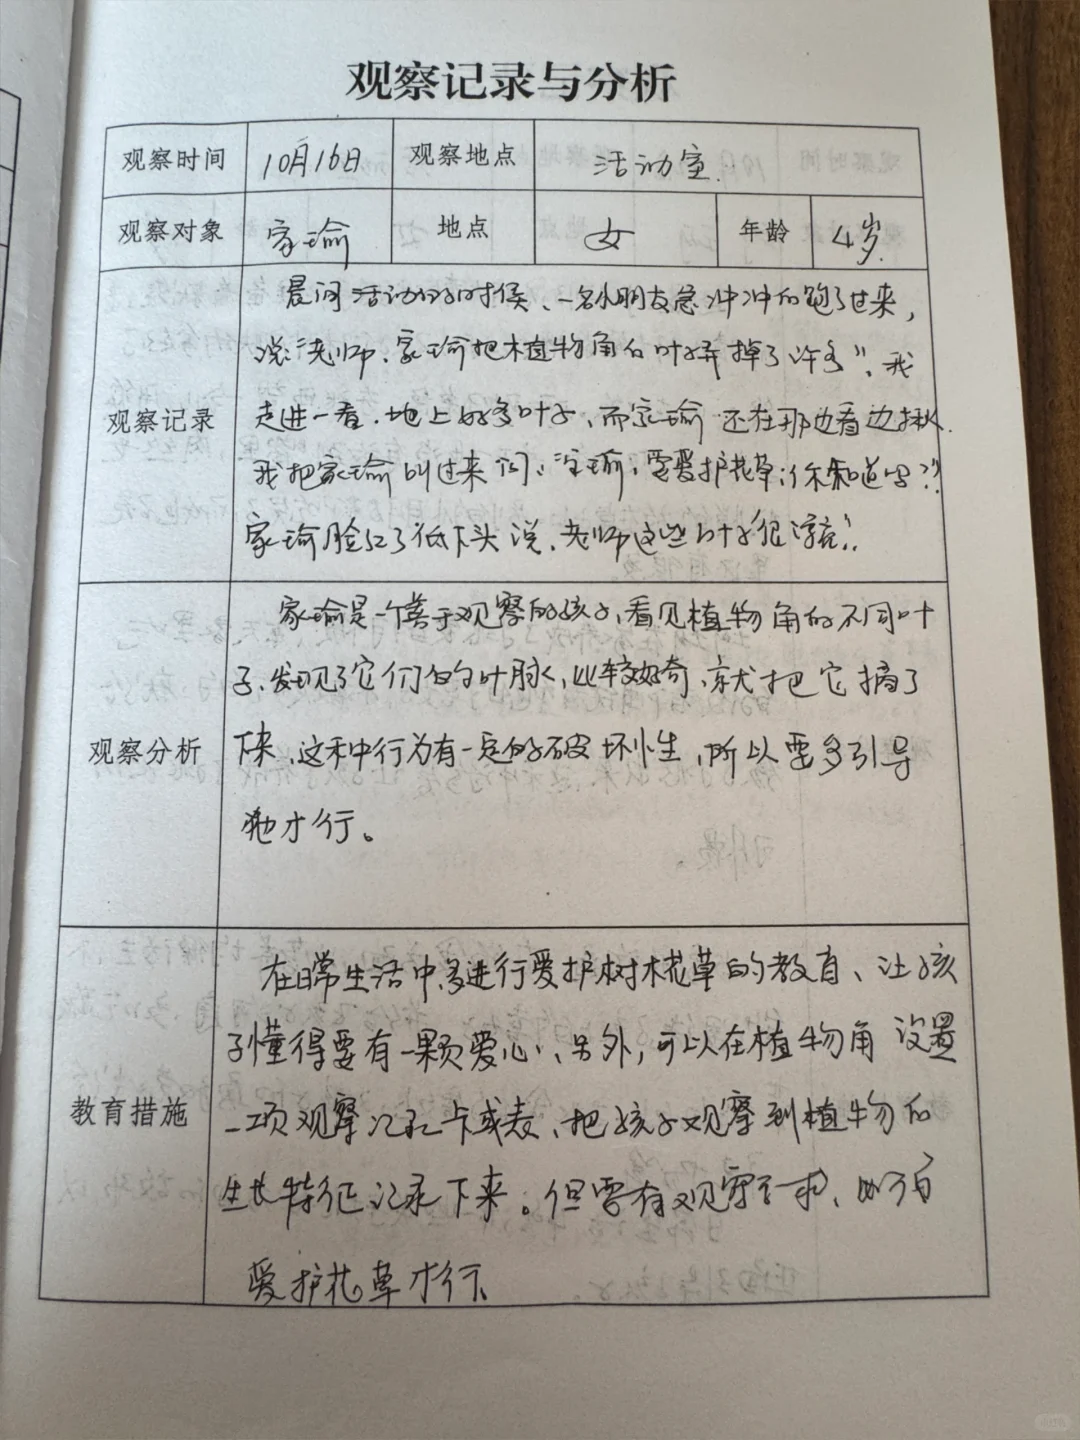 观察记录与分析
观察时间 10月16日 观察地点 活动室.
观察对象 家瑜 地点 女 年龄 4岁.
晨间活动的时候、一名小朋友急冲冲的跑了过来,
说:“老师、家瑜把植物角的叶子弄掉了许多”、我
观察记录 走进一看.地上好多叶子、而家瑜还在那边看边揪.
我把家瑜叫过来问: 瑜,要爱护花草,你知道吗??
家瑜脸红了低下头说、老师这些叶子很漂亮!
家瑜是一个善于观察的孩子,看见植物角的不同叶
子、发现了它们的叶脉,比较好奇、就把它摘了
观察分析 下来、这种行为有一定的破坏性,所以要多引导
她才行。
在日常生活中多进行爱护树木花草的教育、让孩
子懂得要有一颗爱心、另外,可以在植物角设置
教育措施 一项观察记录卡或表、把孩子观察到植物的
生长特征记录下来。但要有观察要求、
爱护花草才行、